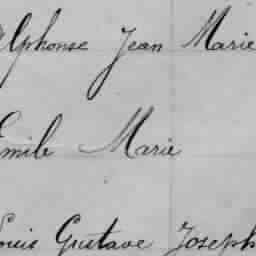 Alphonse Jean Marie
Emile Marie
Louis Gustave Joseph